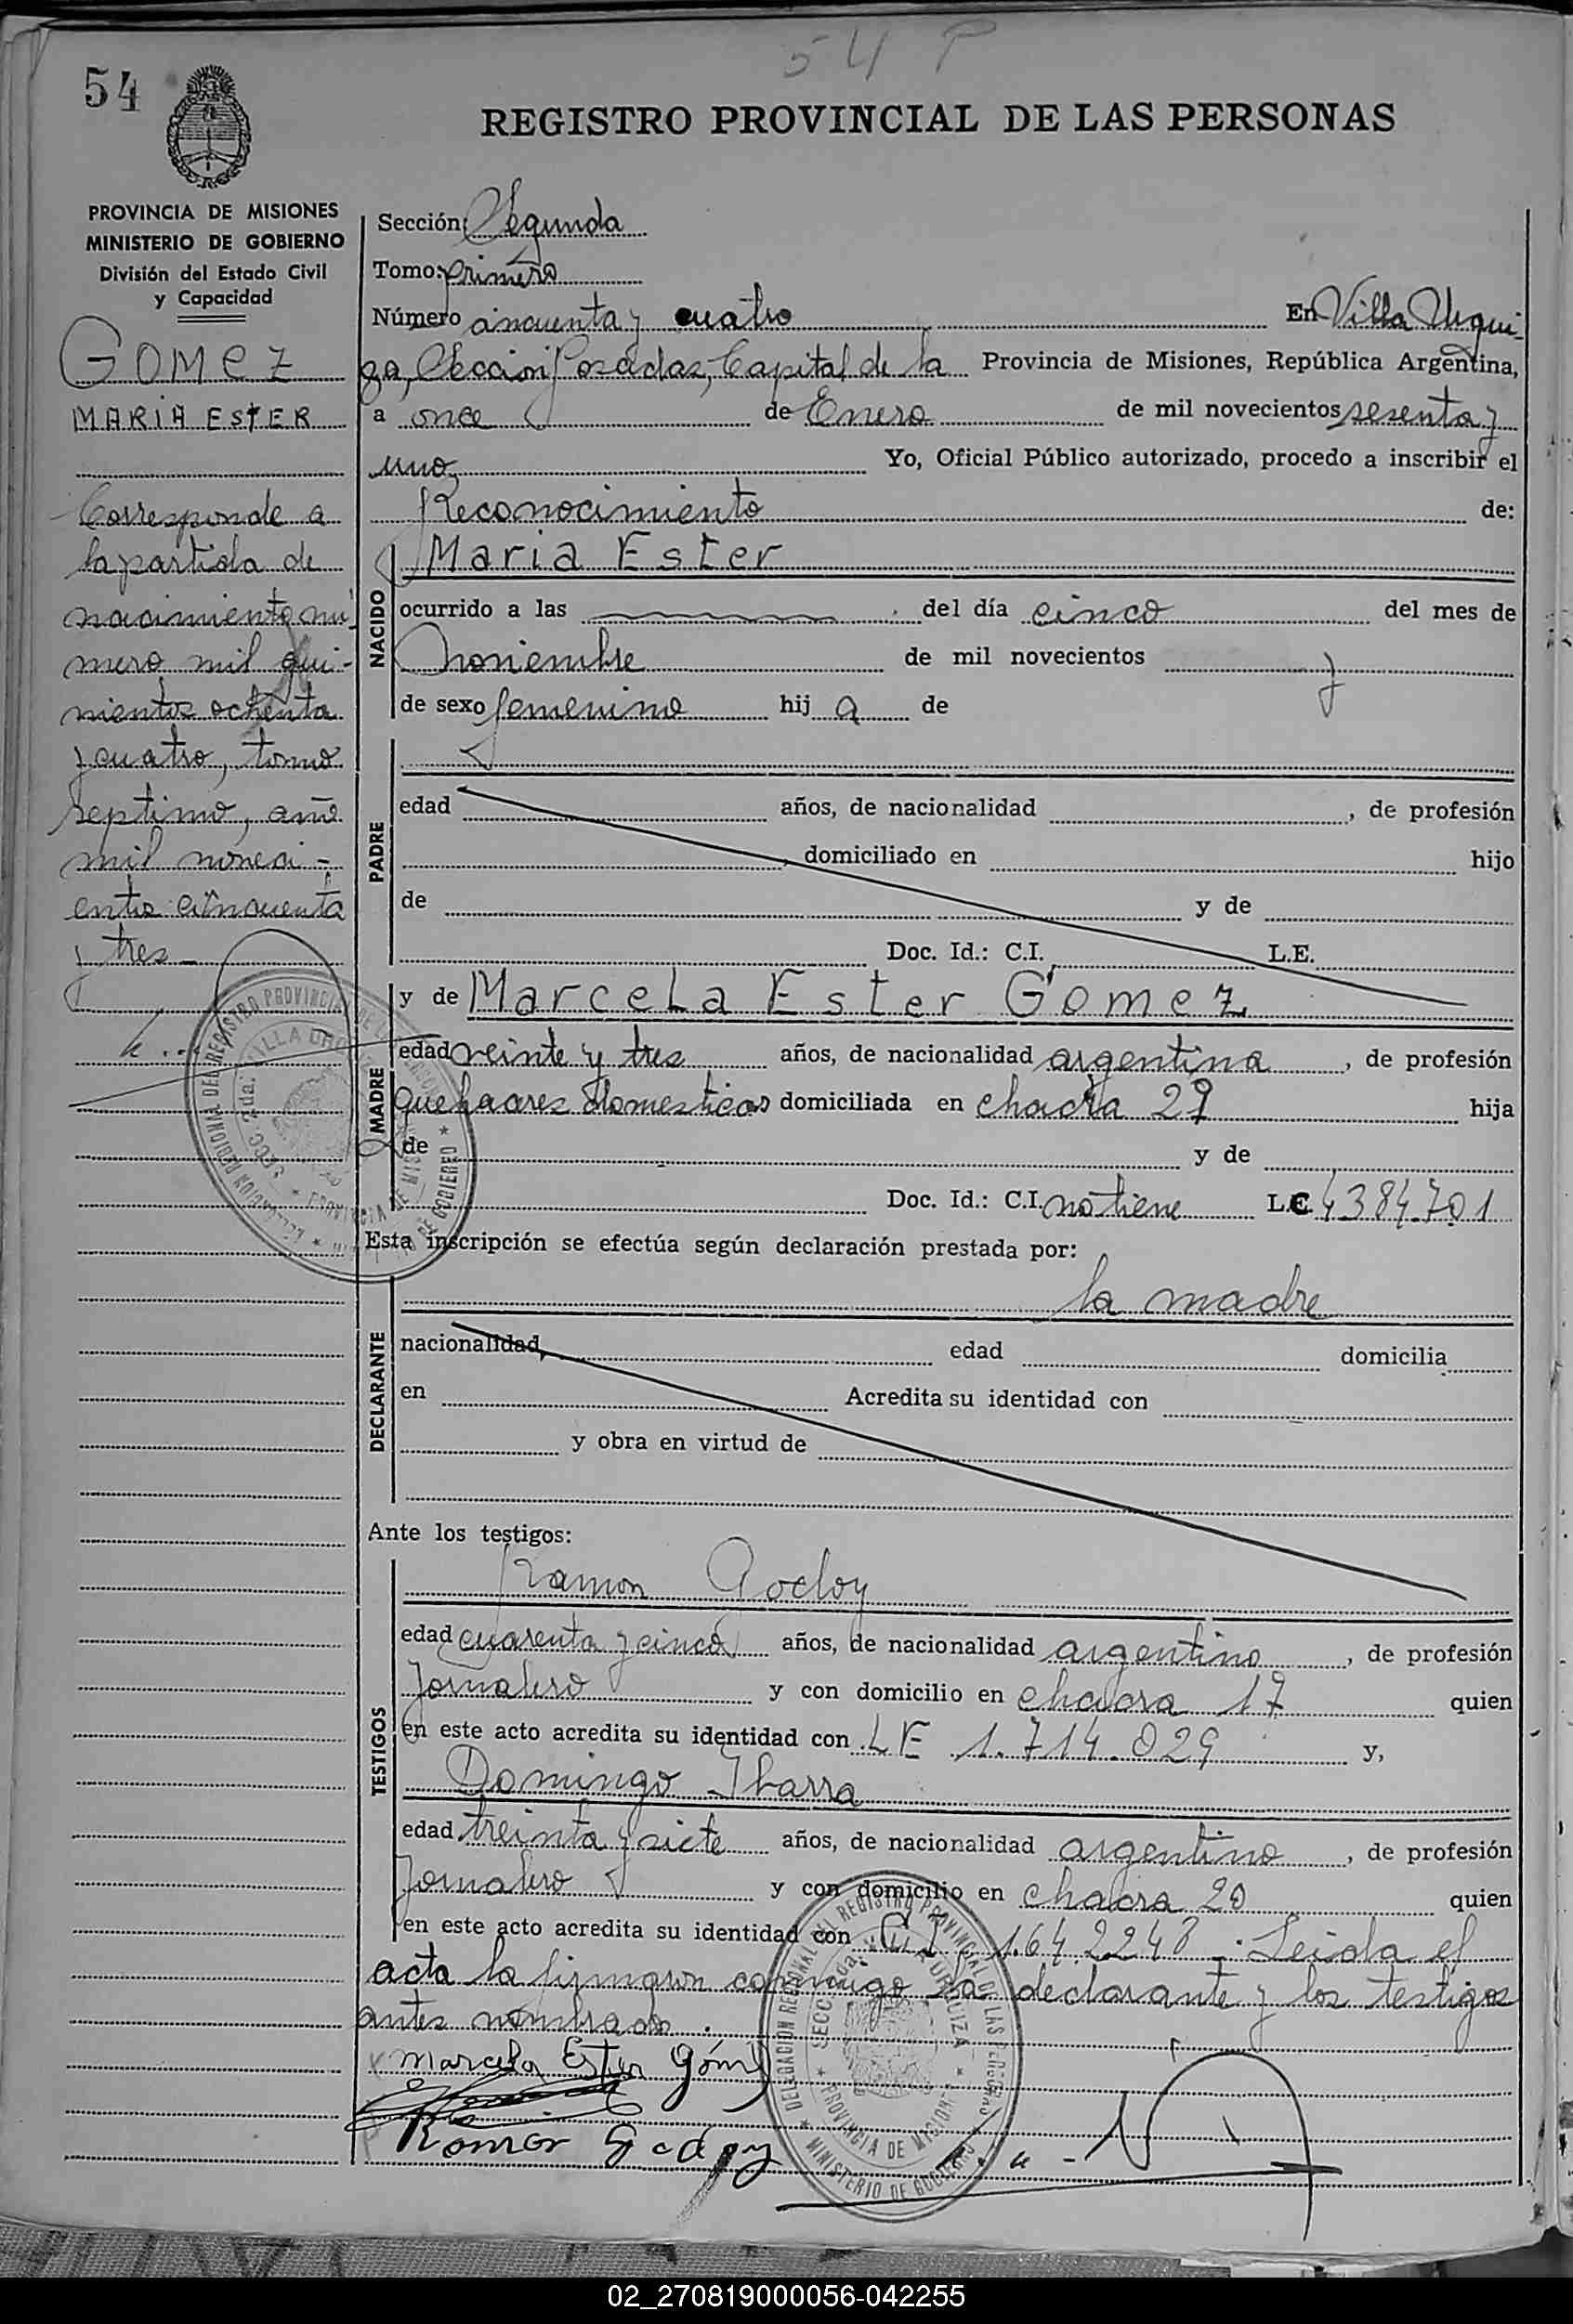 54 P
54
REGISTRO PROVINCIAL DE LAS PERSONAS
PROVINCIA DE MISIONES
MINISTERIO DE GOBIERNO
División del Estado Civil
y Capacidad
GOMEZ
MARIA ESTER
Corresponde a
la partida de
nacimiento nú
mero mil qui-
nientos ochenta
y cuatro, tomo
septimo, año
mil noveci-
entos cincuenta
y tres -
Sección: Segunda
Tomo: primero
Número cincuenta y cuatro En Villa Urqui-
za, Sección Posadas, Capital de la Provincia de Misiones, República Argentina,
a once de Enero de mil novecientos sesenta y
uno Yo, Oficial Público autorizado, procedo a inscribir el
Reconocimiento de:
NACIDO
Maria Ester
ocurrido a las del día cinco del mes de
noviembre de mil novecientos y
de sexo femenino hij a de
PADRE
edad años, de nacionalidad , de profesión
, domiciliado en hijo
de y de
Doc. Id.: C.I. L.E.
MADRE
y de Marcela Ester Gomez
edad veinte y tres años, de nacionalidad argentina , de profesión
quehaceres domesticos domiciliada en chacra 29 hija
de y de
Doc. Id.: C.I. no tiene L.C 4384.701
Esta inscripción se efectúa según declaración prestada por:
la madre
DECLARANTE
nacionalidad, edad domicilia
en Acredita su identidad con
y obra en virtud de
Ante los testigos:
TESTIGOS
Ramon Godoy
edad cuarenta y cinco años, de nacionalidad argentino , de profesión
Jornalero y con domicilio en chacra 17 quien
en este acto acredita su identidad con LE 1.714.029 y,
Domingo Ibarra
edad treinta y siete años, de nacionalidad argentino , de profesión
Jornalero y con domicilio en chacra 20 quien
en este acto acredita su identidad con C.I. 1.642248 -. Leida el
acta la firmaron conmigo la declarante y los testigos
antes nombrado.
Marcela Ester Gómez
Ramon Godoy
DELEGACION REGIONAL DEL REGISTRO PROVINCIAL DE LAS PERSONAS
MINISTERIO DE GOBIERNO
SECC. 2da. VILLA URQUIZA
PROVINCIA DE MISIONES
02_270819000056-042255